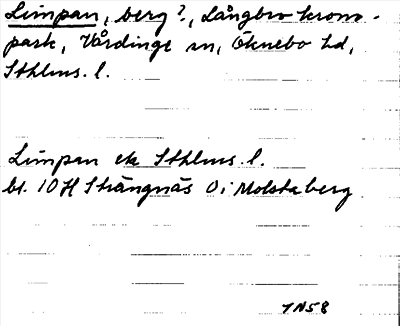 Limpan, berg?, Långbro krono-
park, Vårdinge sn, Öknebo hd,
Sthlms. l.
Limpan ek Sthlms. l.
bl. 10H Strängnäs O; Molstaberg
YN58